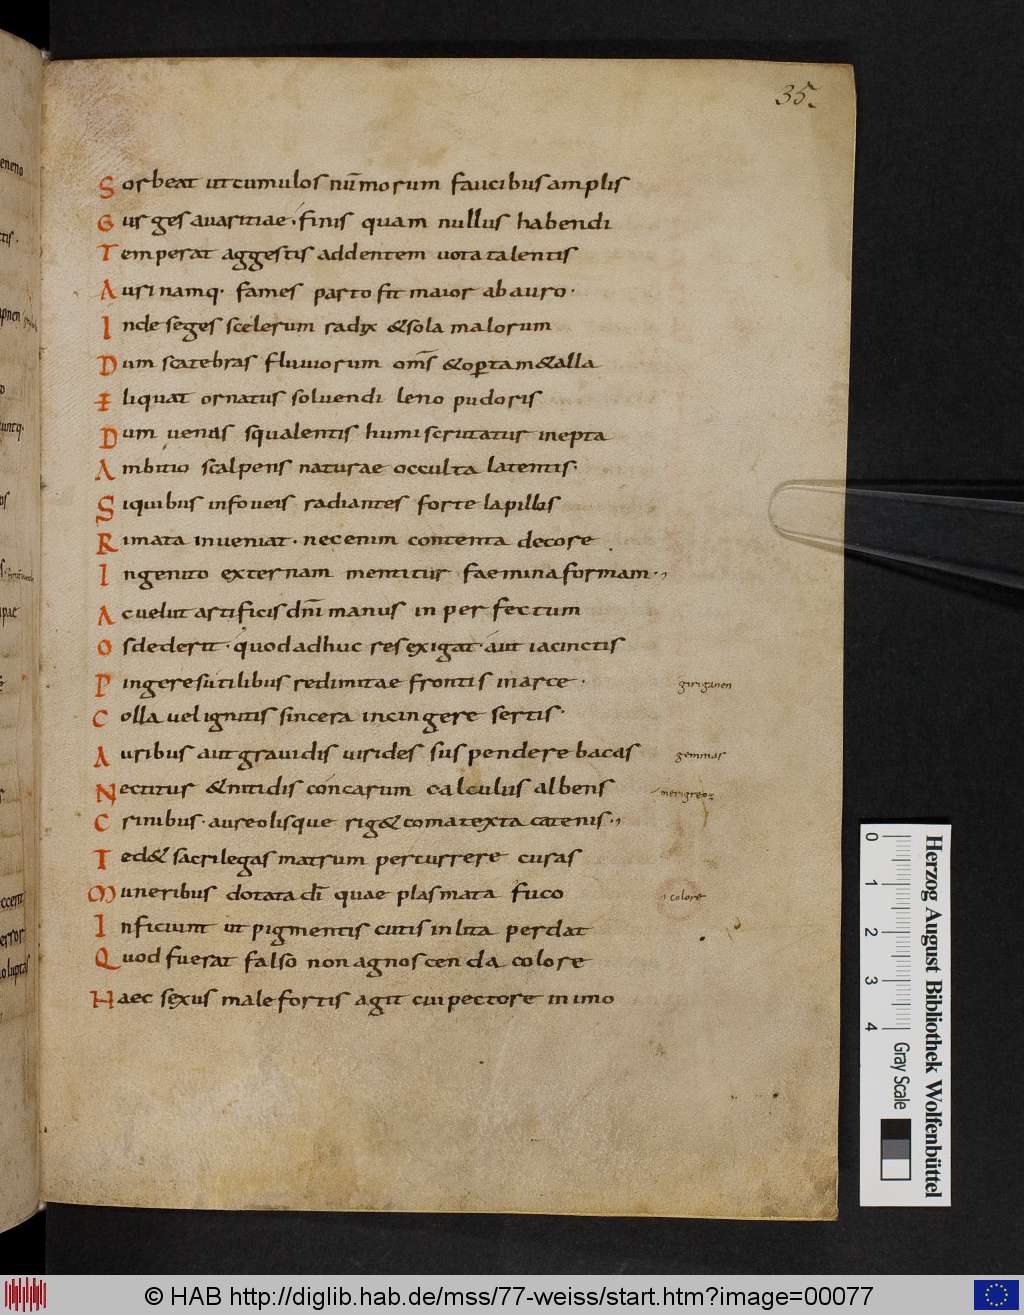 35.
Sorbeat ut cumulos nūmorum faucibus amplis
Gurges auaritiae · finis quam nullus habendi
Temperat aggestis addentem uota talentis
Auri namq· fames parto fit maior ab auro ·
Inde seges scelerum radix & sola malorum
Dum scatebras fluuiorum om̄s & op̱tam&alla
Eliquat ornatus soluendi leno pudoris
Dum uenas squalentis humi scrutatur inepta
Ambitio scalpens naturae occulta latentis ·
Si quibus in foueis radiantes forte lapillus
Rimata inueniat · nec enim contenta decore
Ingenito externam mentitur faemina formam ·,
Ac uelut artificis dn̄i manus inperfectum
Os dederit · quod adhuc res exigat · aut iacinctis
Pingere sutilibus redimitae frontis in arce ·
giriganen
Colla uel ignitis sincera incingere sertis ·
Auribus aut grauidis uirides suspendere bacas
gemmas
Nectitur & nitidis concarum calculus albens
merigreoz
Crinibus · aureolisque rig& coma texta catenis ·,
Ted& sacrilegas matrum percurrere curas
Muneribus dotata dī quae plasmata fuco
colore
Inficiunt ut pigmentis cutis inlita perdat
Quod fuerat falso non agnoscenda colore
Haec sexus male fortis agit cui pectore in imo
0 1 2 3 4 Gray Scale
Herzog August Bibliothek Wolfenbüttel
© HAB http://diglib.hab.de/mss/77-weiss/start.htm?image=00077